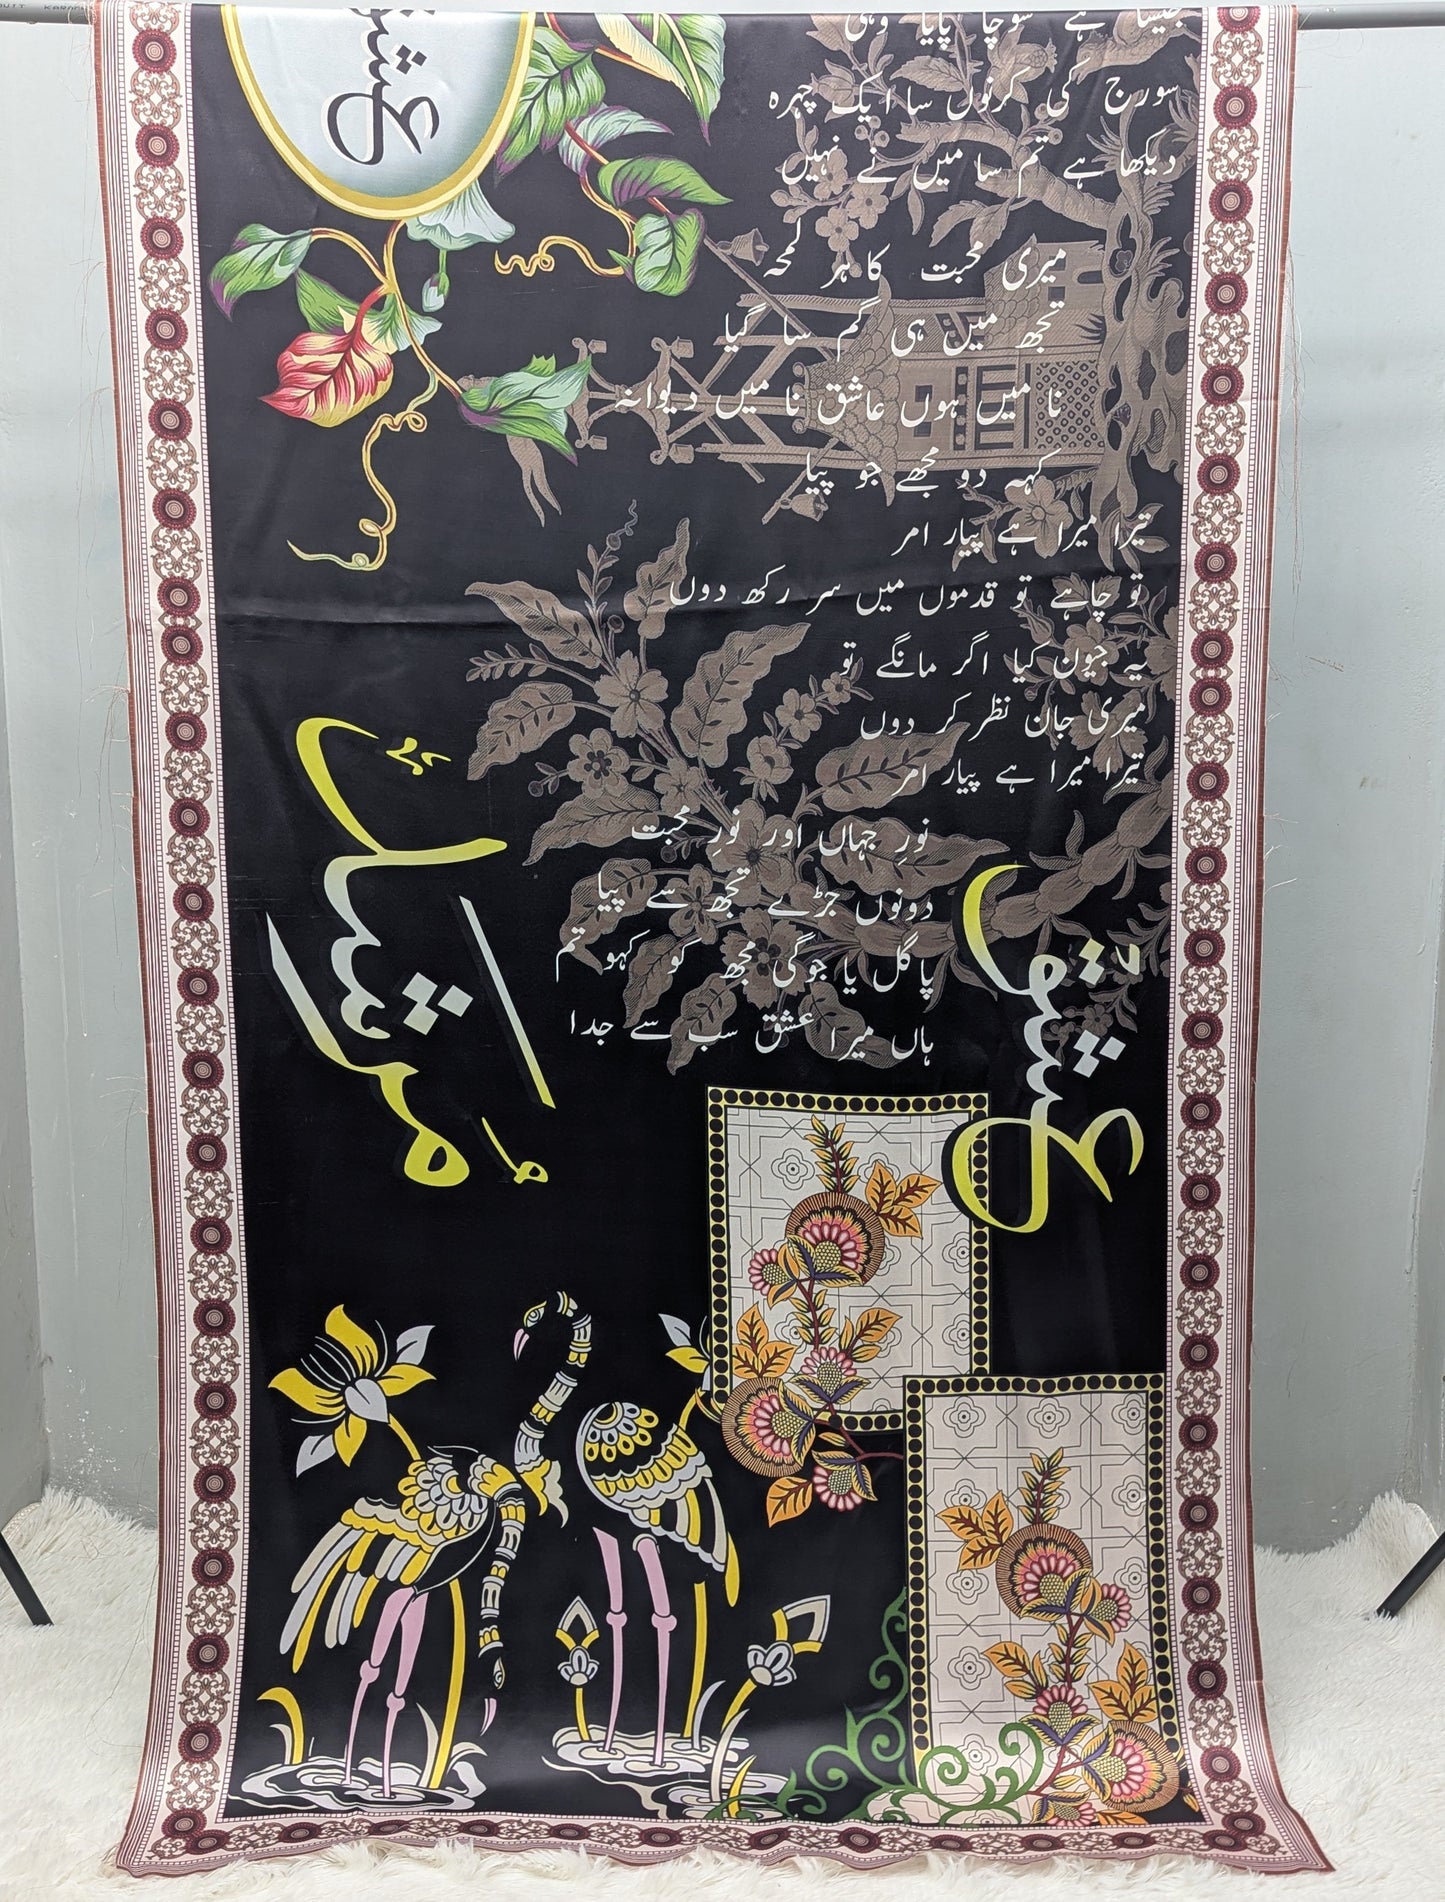 عشق
جیسا ہے سوچا پایا وہی
سورج کی کرنوں سا ایک چہرہ
دیکھا ہے تم سا میں نے نہیں
میری محبت کا ہر لمحہ
تجھ میں ہی گم سا گیا
نا میں ہوں عاشق نا میں دیوانہ
کہہ دو مجھے جو پیا
تیرا میرا ہے پیار امر
تو چاہے تو قدموں میں سر رکھ دوں
یہ جیون کیا اگر مانگے تو
میری جان نظر کر دوں
تیرا میرا ہے پیار امر
نورِ جہاں اور نورِ محبت
دونوں جڑے تجھ سے پیا
پاگل یا جوگی مجھ کو کہو تم
ہاں میرا عشق سب سے جدا
مُرشد
عشق